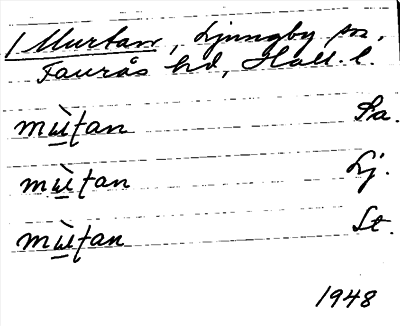 1 Murtan, Ljungby sn,
Faurås hd, Hall. l.
mù̲ʈan Sa.
mù̲ʈan Lj.
mù̲ʈan St.
1948